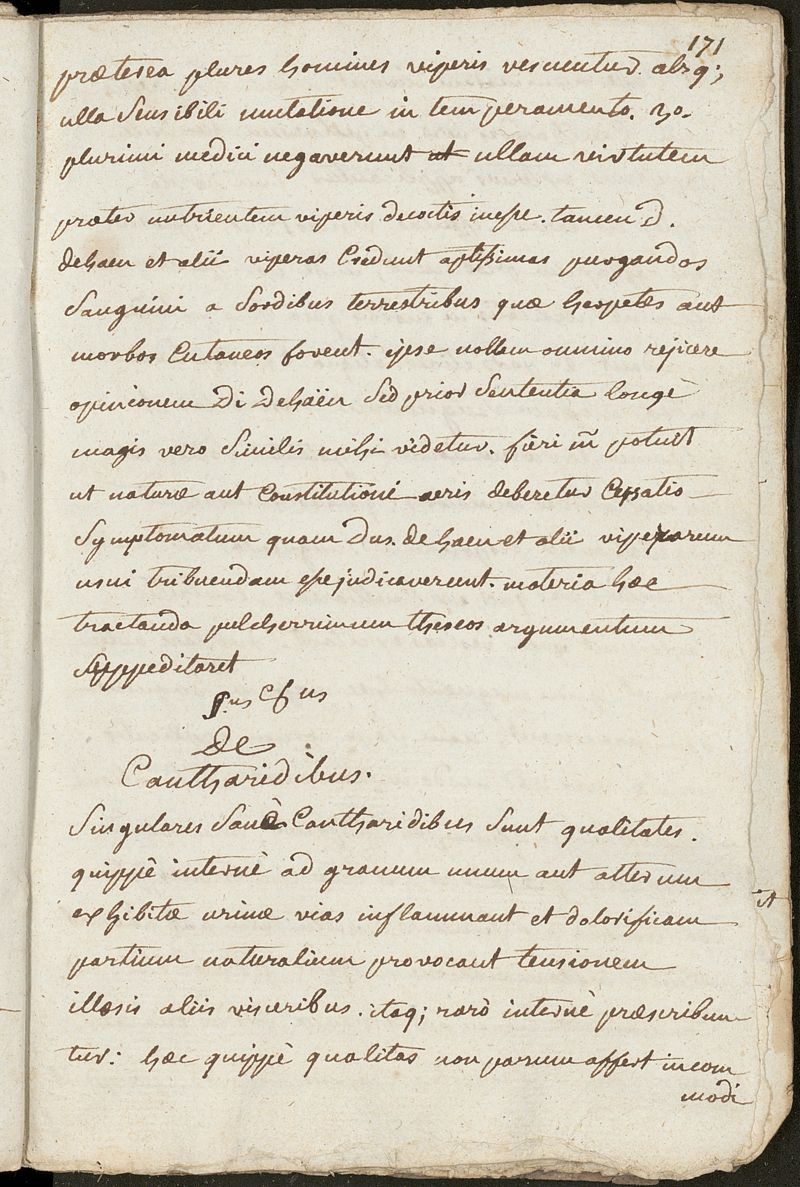 171
præterea plures homines viperis vescuntur. absq;
ulla sensibili mutatione in temperamento. 3o.
plurimi medici negaverunt ut ullam virtutem
præter nutrientem viperis decoctis inesse. tamen D.
dehaen et alii viperas credunt aptissimas purgandos
sanguini a sordibus terrestribus quæ herpetes aut
morbos cutaneos fovent. ipse nollem omnino rejicere
opinionem Di Dehäen sed prior sententia longè
magis vero similis mihi videtur. fieri m̄ potuit
ut naturæ aut constitutioni aeris deberetur cessatio
symptomatum quam Dus. de haen et alii viperarum
usui tribuendam esse judicaverunt. materia hæc
tractanda pulcherrimum theseos argumentum
suppeditaret
us us
De
Cantharidibus.
Singulares sanè Cantharidibus sunt qualitates.
quippè internè ad granum unum aut alterum
exhibitæ urinæ vias inflammant et dolorificam
partium naturalium provocant tensionem
illæsis aliis visceribus. itaq; rarò internè præscribun
tur: hæc quippè qualitas non parum affert incom
modi